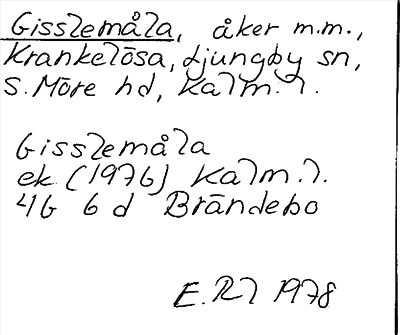 Gisslemåla, åker m.m.,
Krankelösa, Ljungby sn,
S. Möre hd, Kalm. l.
Gisslemåla
ek (1976) Kalm. l.
4G 6d Brändebo
E. Rl 1978